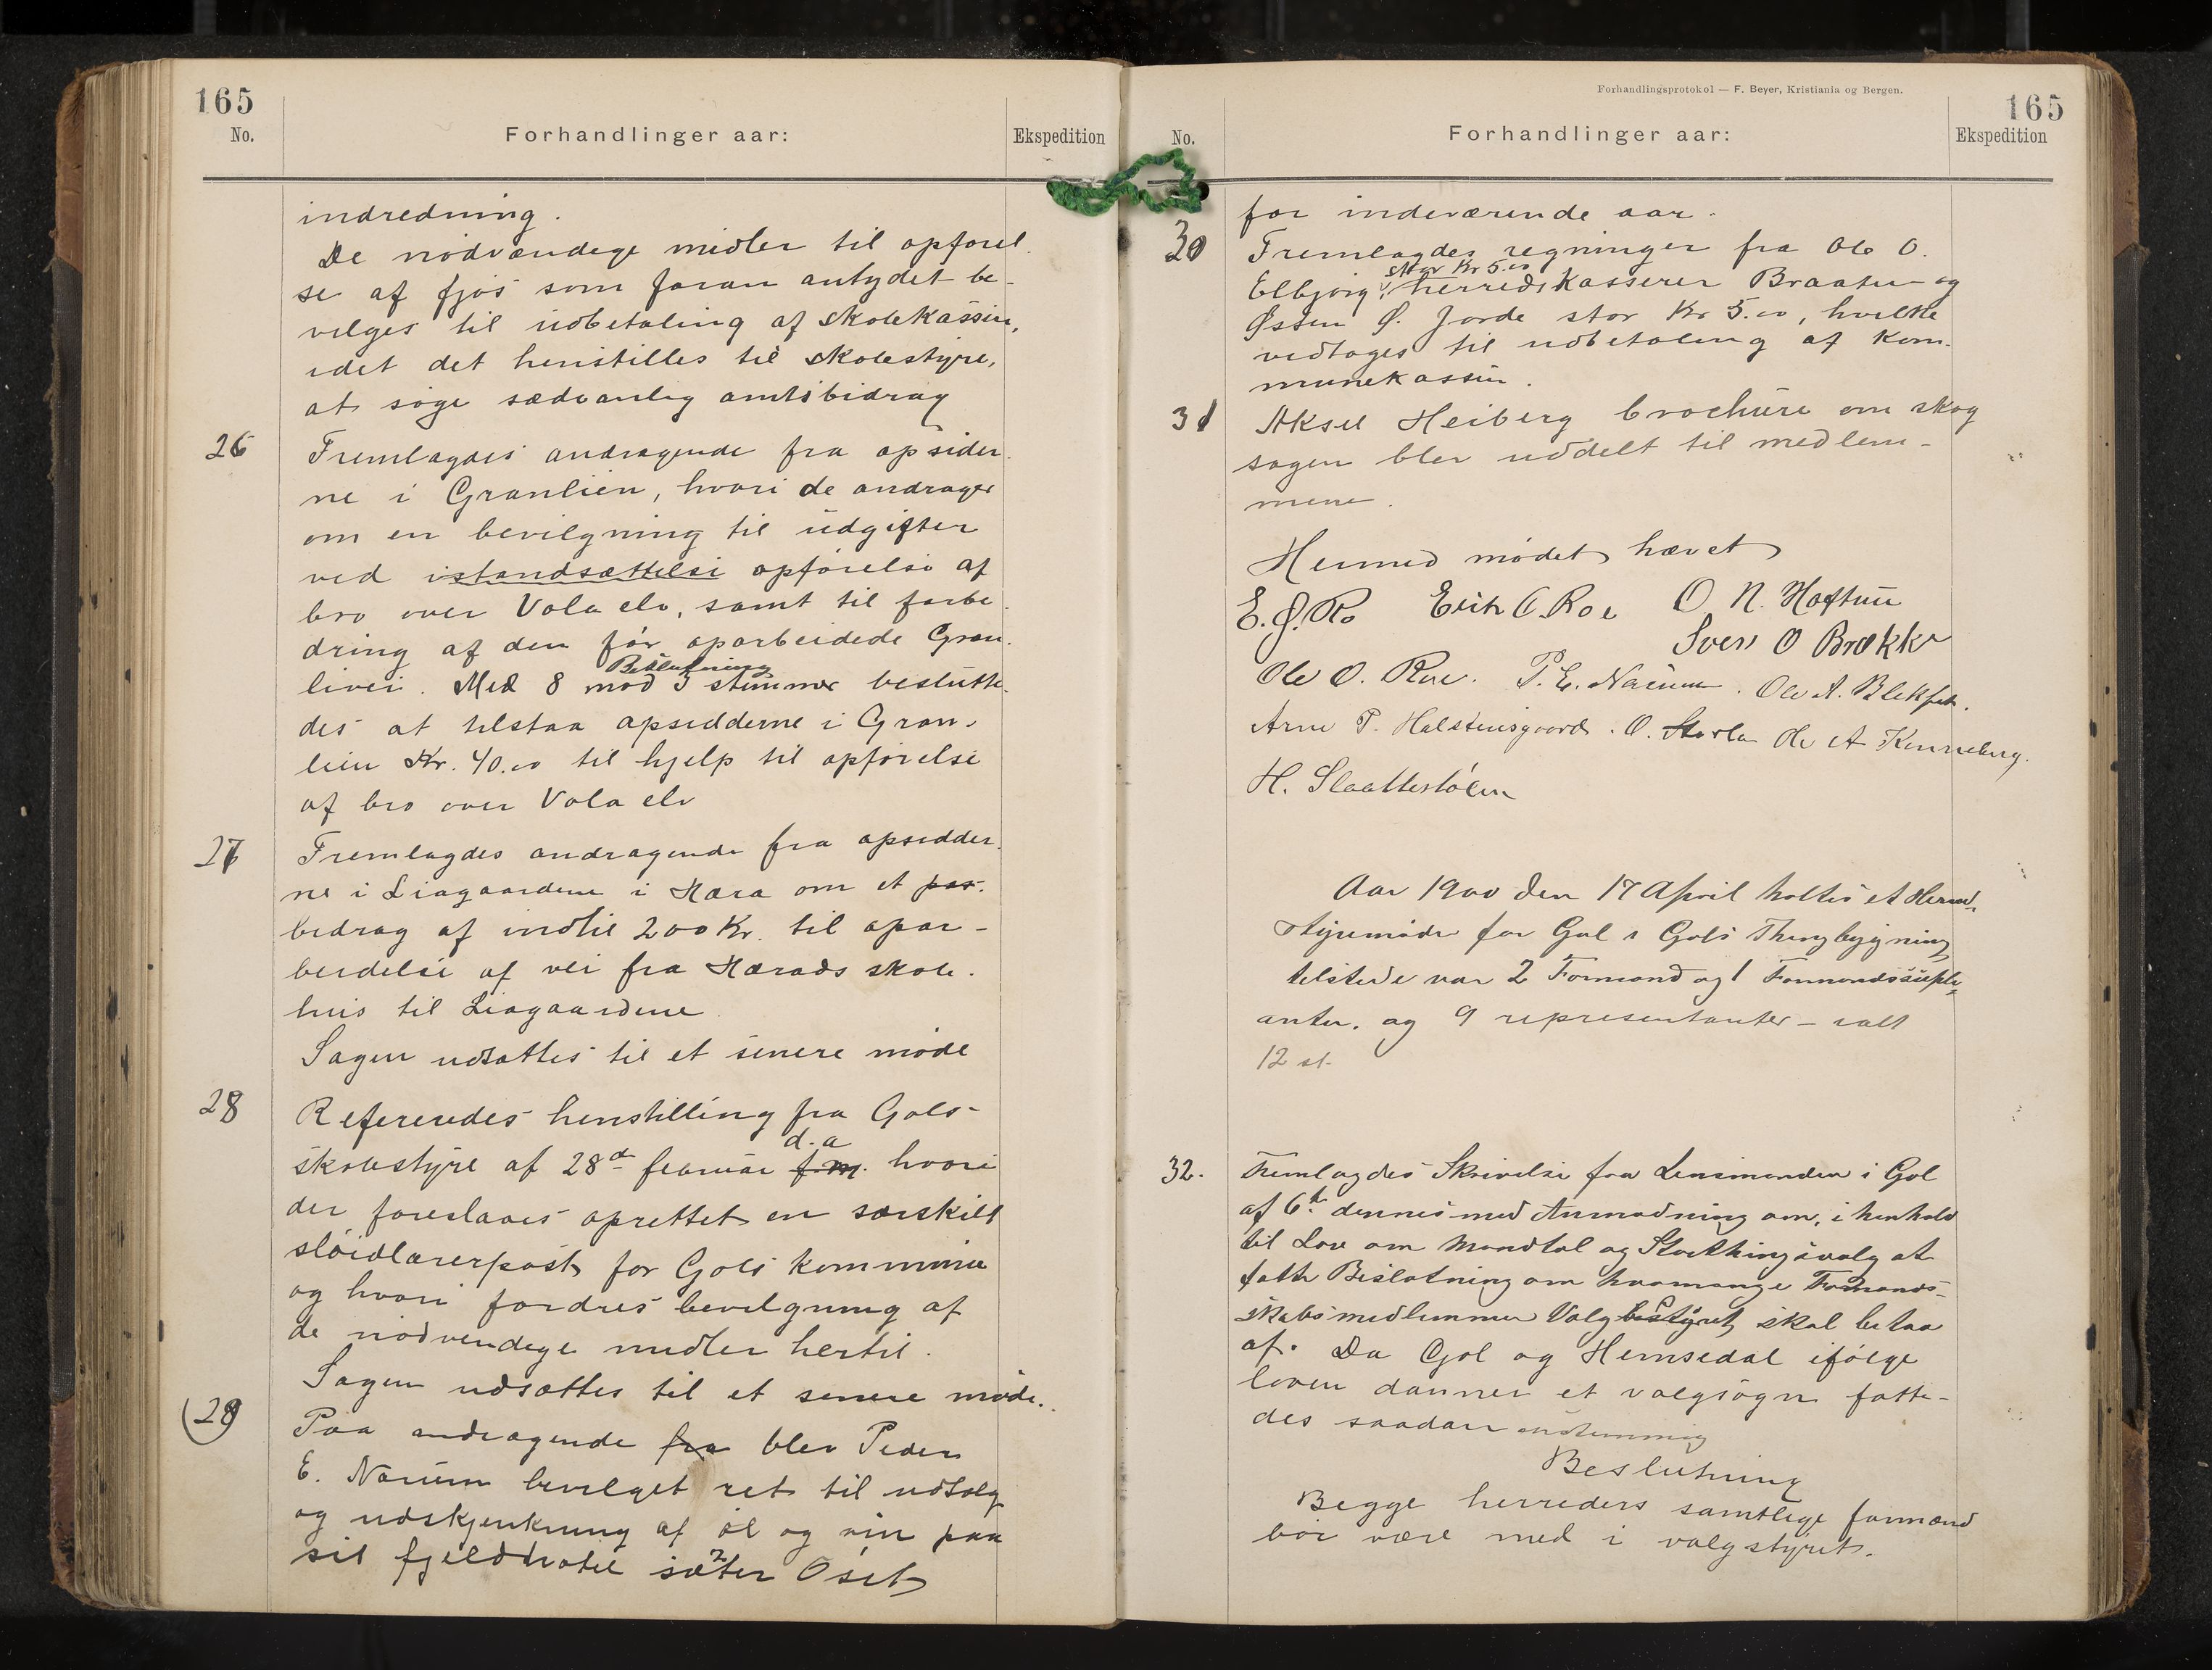 165
No.
Forhandlinger aar:
Ekspedition
indredning.
De nödvændige midler til opförel
se af fjös som foran antydet be-
vilges til udbetaling af skolekassen,
idet det henstilles til skolestyre,
at söge sædvanlig amtsbidrag
26 Fremlagdes andragende fra opsider
ne i Granlien, hvori de andrager
om en bevilgning til udgifter
ved istandsættelse opförelse af
bro over Vola elv, samt til forbe
dring af den för oparbeidede Gran
livei. Med 8 mod 5 stemmer beslutte-
Beslutning
des at tilstaa opsidderne i Gran-
lien Kr. 40.00 til hjelp til opförelse
af bro over Vola elv
27 Fremlagdes andragende fra opsidder
ne i Liagaardene i Hæra om et
bidrag af indtil 200 Kr. til opar-
beidelse af vei fra Hærads skole-
huis til Liagaardene
Sagen udsattes til et senere möde
28 Refereredes henstilling fra Gols-
d.a
skolestyre af 28de februar f.m. hvori
der foreslaaes oprettet en særskilt
slöidlærerpost for Gols kommune
og hvori fordres bevilgning af
de nödvendige midler hertil.
Sagen udsættes til et senere möde.
(29) Paa andragende fra blev Peder
E. Narum bevilget ret til udsalg
og udskjenkning af öl og vin paa
sit fjeldhotel sæter Oset
Forhandlingsprotokol — F. Beyer, Kristiania og Bergen.
165
No.
Forhandlinger aar:
Ekspedition
for indeværende aar.
30 Fremlagdes regninger fra Ole O.
stor Kr 5.00
Elbjörg, herredskasserer Braaten og
Östen Ö. Jorde stor Kr 5.00, hvilke
vedtoges til udbetaling af kom-
munekassen.
31 Aksel Heiberg brochure om skog
sagen blev uddelt til medlem-
mene.
Hermed mödet hævet
E. J. Ro Erik O. Roe O. N. Haftun
Sven O Brække
Ole O. Roe. P. E. Narum. Ole A. Blekfet.
Arne P. Halstensgaard. O. Storla Ole A Kinneberg.
H. Slaattestölen
Aar 1900 den 17 April holdtes et Herred-
styremöde for Gol i Gols Thingbygning
tilstede var 2 Formænd og 1 Formandssuple-
anter. og 9 representanter – ialt
12 st.
32. Fremlagdes Skrivelse fra Lensmanden i Gol
af 6te dennes med Anmodning om, i henhold
til Lov om Mandtal og Storthingsvalg at
fatte Beslutning om hvormange Formands-
skabsmedlemmer Valgbestyret skal bestaa
af. Da Gol og Hemsedal ifölge
loven danner et valgsogn fatte-
des saadan enstemmig
Beslutning
Begge herreders samtlige formænd
bör være med i valgstyret.